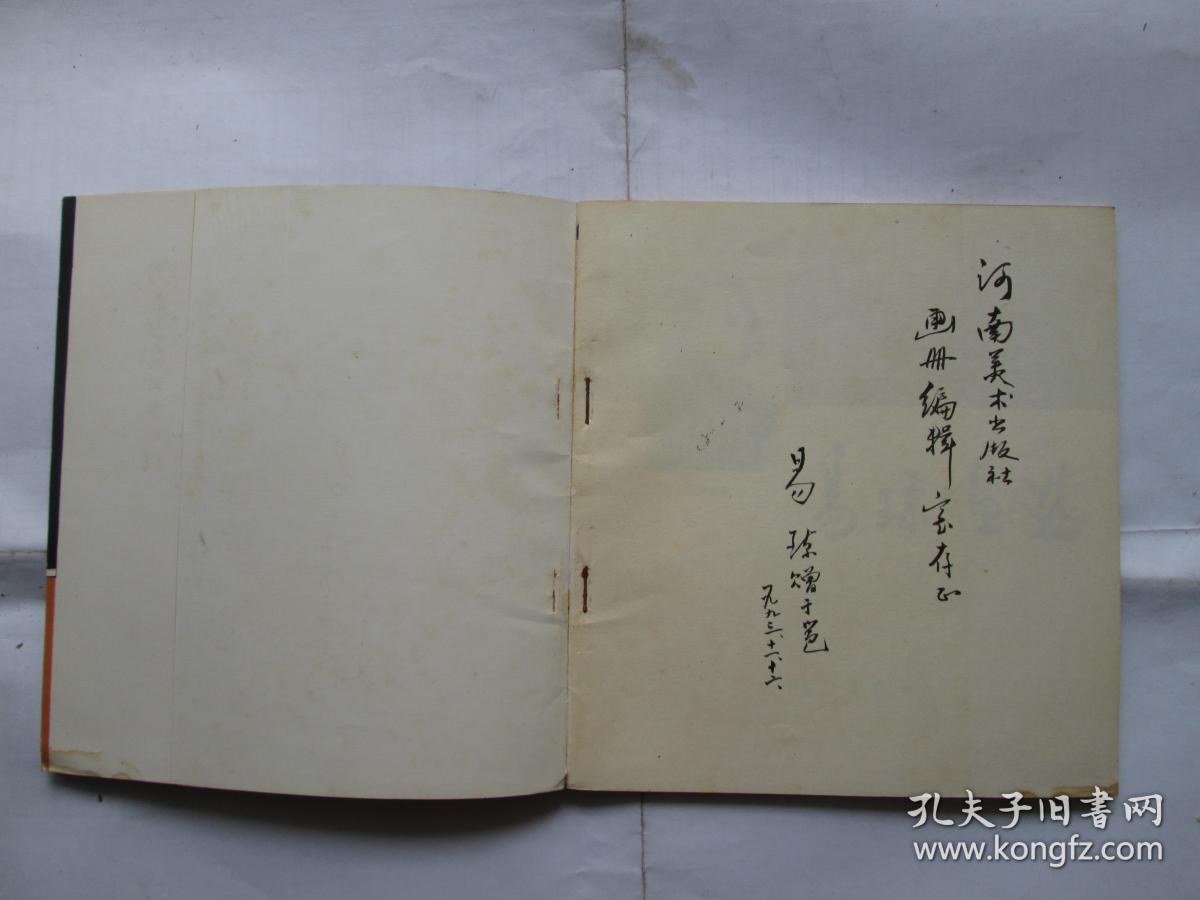 河南美术出版社
画册编辑室存正
易琼赠于邕
一九九三、十一、十六、
孔夫子旧书网
www.kongfz.com